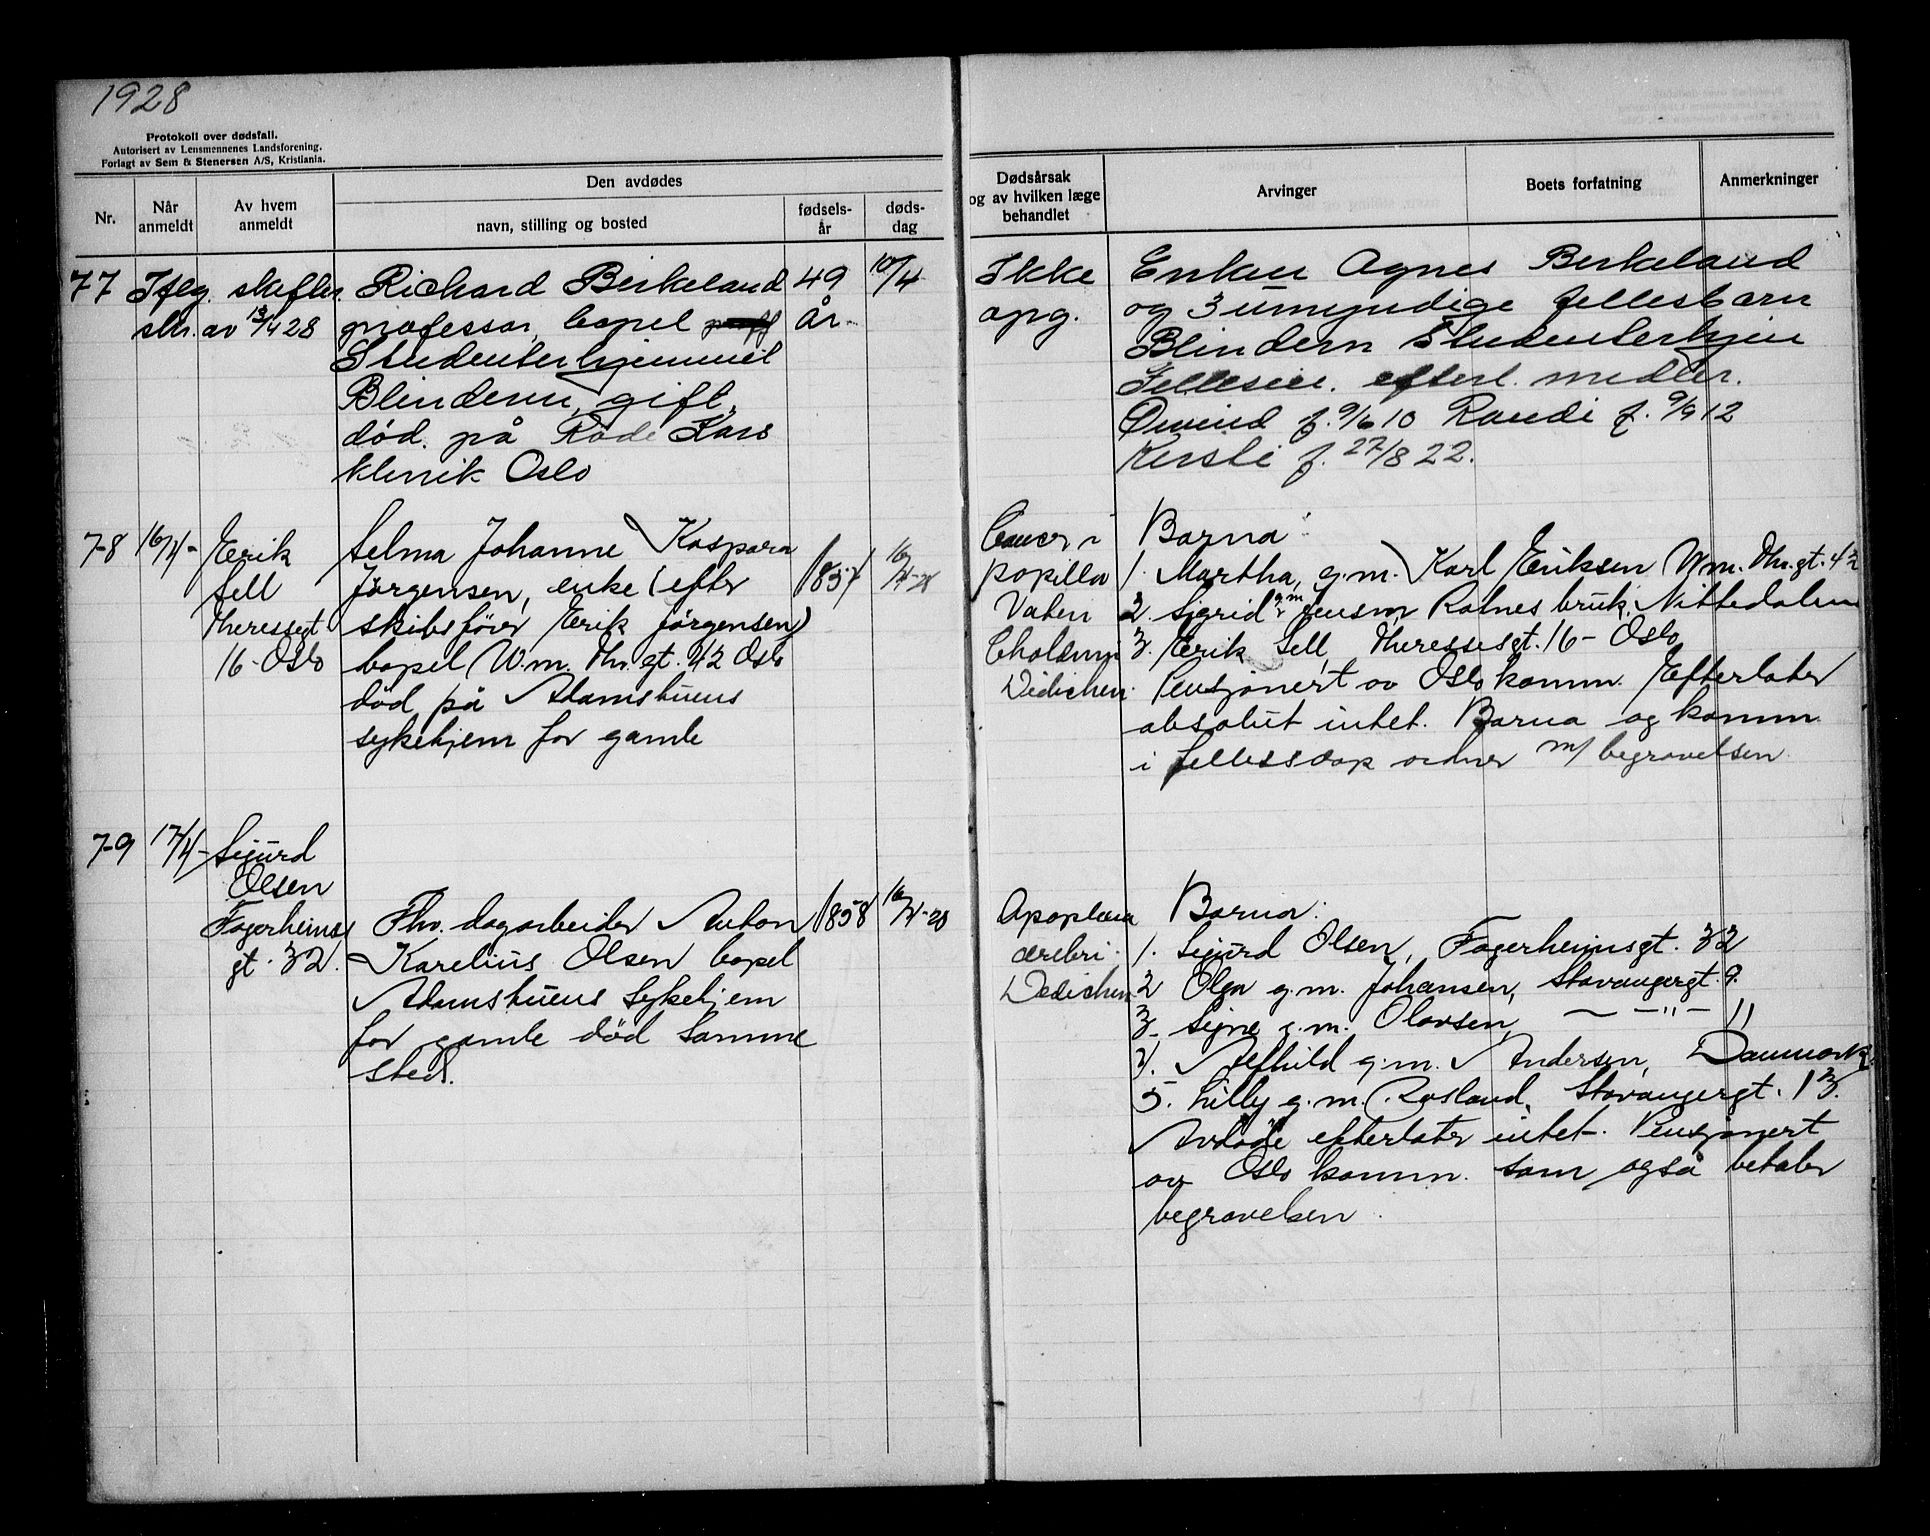 1928
Protokoll over dødsfall.
Autorisert av Lensmennenes Landsforening.
Forlagt av Sem & Stenersen A/S, Kristiania.
Nr.
Når anmeldt
Av hvem anmeldt
Den avdødes
navn, stilling og bosted
fødsels-år
døds-dag
77 Iflg. skifter. Richard Birkeland 49 10/4
skr. av 13/4 28 professor, bopel år.
Studenterhjemmet
Blindern, gift.
død. på Røde Kors
klinik Oslo
78 16/4- Erik Selma Johanne Kaspara
Sell Jörgensen, enke (efter 1857 16/4-28
Theresesgt skibsförer Erik Jörgensen)
16-Oslo bopel W.m. Thr.gt. 42 Oslo
död på Adamstuens
sykehjem for gamle
79 17/4- Sigurd
Olsen
Fagerheims Fhv. dagarbeider Anton 1858 16/4-28
gt. 32. Karelius Olsen bopel
Adamstuens Sykehjem
for gamle död samme
sted.
Dødsårsak og av hvilken læge behandlet
Arvinger
Boets forfatning
Anmerkninger
Ikke Enken Agnes Birkeland
opg. og 3 umyndige fellesbarn
Blindern Studenterhjem
Felleseie. efterl. midler.
Øivind f. 9/6 10 Randi f. 9/9 12
Kirsti f. 27/8 22.
Cancer i Barna:
papilla 1. Martha, g.m. Karl Eriksen W.m. Thr.gt. 42
Vateri 2. Sigrid g.m. Rotnes bruk, Nittedalen
3. Erik Sell, Theresesgt. 16 - Oslo
Dedichen. Pensjonert av Oslo komm. Efterlater
absolut intet. Barna og komm.
i fellesskap ordner m/ begravelsen
Apoplexia Barna:
cerebri. 1. Sigurd Olsen, Fagerheimsgt. 32
Dedichen 2 Olga g.m. Johansen, Stavangergt. 9.
3. Signe g.m. Olavsen, — -"- "
4. Alfhild g.m. Andersen, Danmark.
5. Lilly g.m. Røsland, Stavangergt. 13.
Avdøde efterlater intet. Pensjonert
av Oslo komm. som også betaler
begravelsen.